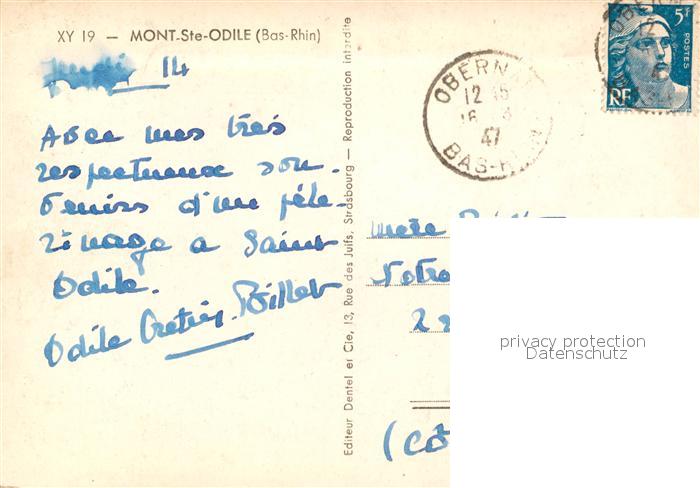 XY 19 — MONT-Ste-ODILE (Bas-Rhin)
jeudi 14
Avec mes très
respectueux sou-
venirs d'un péle-
rinage a Saint
Odile.
Odile Billet
Editeur Dentel et Cie, 13, Rue des Juifs, Strasbourg — Reproduction interdite
OBERN
12
16
47
BAS-RHIN
5F
POSTES
RF
Notre
privacy protection
Datenschutz